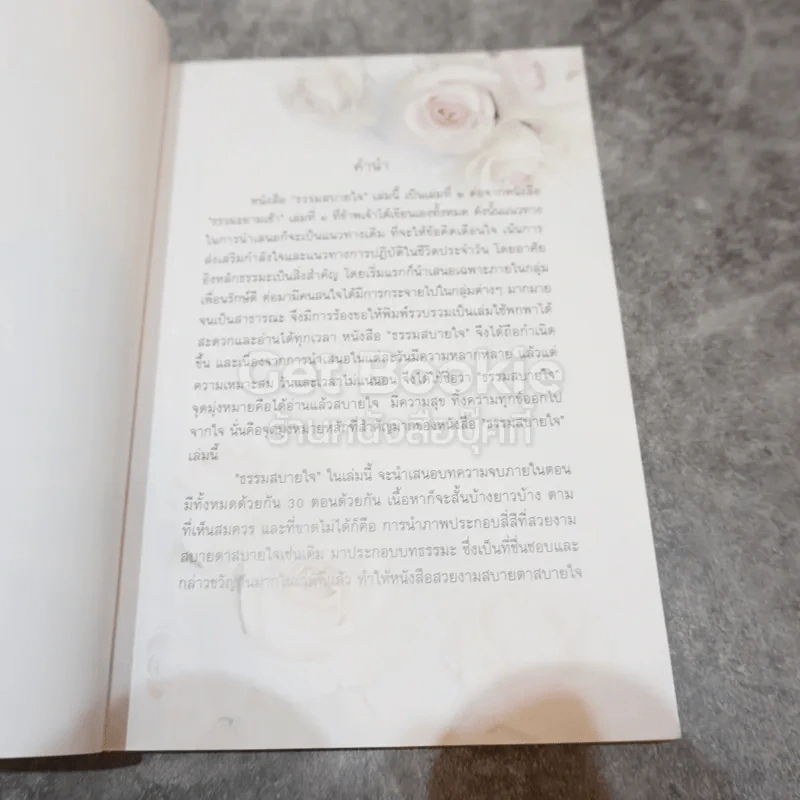 คำนำ
หนังสือ "ธรรมสบายใจ" เล่มนี้ เป็นเล่มที่ ๒ ต่อจากหนังสือ
"ธรรมะยามเช้า" เล่มที่ ๑ ที่ข้าพเจ้าได้เขียนเองทั้งหมด ดังนั้นแนวทาง
ในการนำเสนอก็จะเป็นแนวทางเดิม ที่จะให้ข้อคิดเตือนใจ เน้นการ
ส่งเสริมกำลังใจและแนวทางการปฏิบัติในชีวิตประจำวัน โดยอาศัย
อิงหลักธรรมะเป็นสิ่งสำคัญ โดยเริ่มแรกก็นำเสนอเฉพาะภายในกลุ่ม
เพื่อนรักษ์ดี ต่อมามีคนสนใจได้มีการกระจายไปในกลุ่มต่างๆ มากมาย
จนเป็นสาธารณะ จึงมีการร้องขอให้พิมพ์รวบรวมเป็นเล่มใช้พกพาได้
สะดวกและอ่านได้ทุกเวลา หนังสือ "ธรรมสบายใจ" จึงได้ถือกำเนิด
ขึ้น และเนื่องจากการนำเสนอในแต่ละวันมีความหลากหลาย แล้วแต่
ความเหมาะสม วันและเวลาไม่แน่นอน จึงได้ใช้ชื่อว่า "ธรรมสบายใจ"
จุดมุ่งหมายคือได้อ่านแล้วสบายใจ มีความสุข ทิ้งความทุกข์ออกไป
จากใจ นั่นคือจุดมุ่งหมายหลักที่สำคัญมากของหนังสือ "ธรรมสบายใจ"
เล่มนี้
"ธรรมสบายใจ" ในเล่มนี้ จะนำเสนอบทความจบภายในตอน
มีทั้งหมดด้วยกัน 30 ตอนด้วยกัน เนื้อหาก็จะสั้นบ้างยาวบ้าง ตาม
ที่เห็นสมควร และที่ขาดไม่ได้ก็คือ การนำภาพประกอบสี่สีที่สวยงาม
สบายตาสบายใจเช่นเดิม มาประกอบบทธรรมะ ซึ่งเป็นที่ชื่นชอบและ
กล่าวขวัญกันมากในเล่มที่แล้ว ทำให้หนังสือสวยงามสบายตาสบายใจ
Get Bookie
ร้านหนังสือบุ๊คกี้